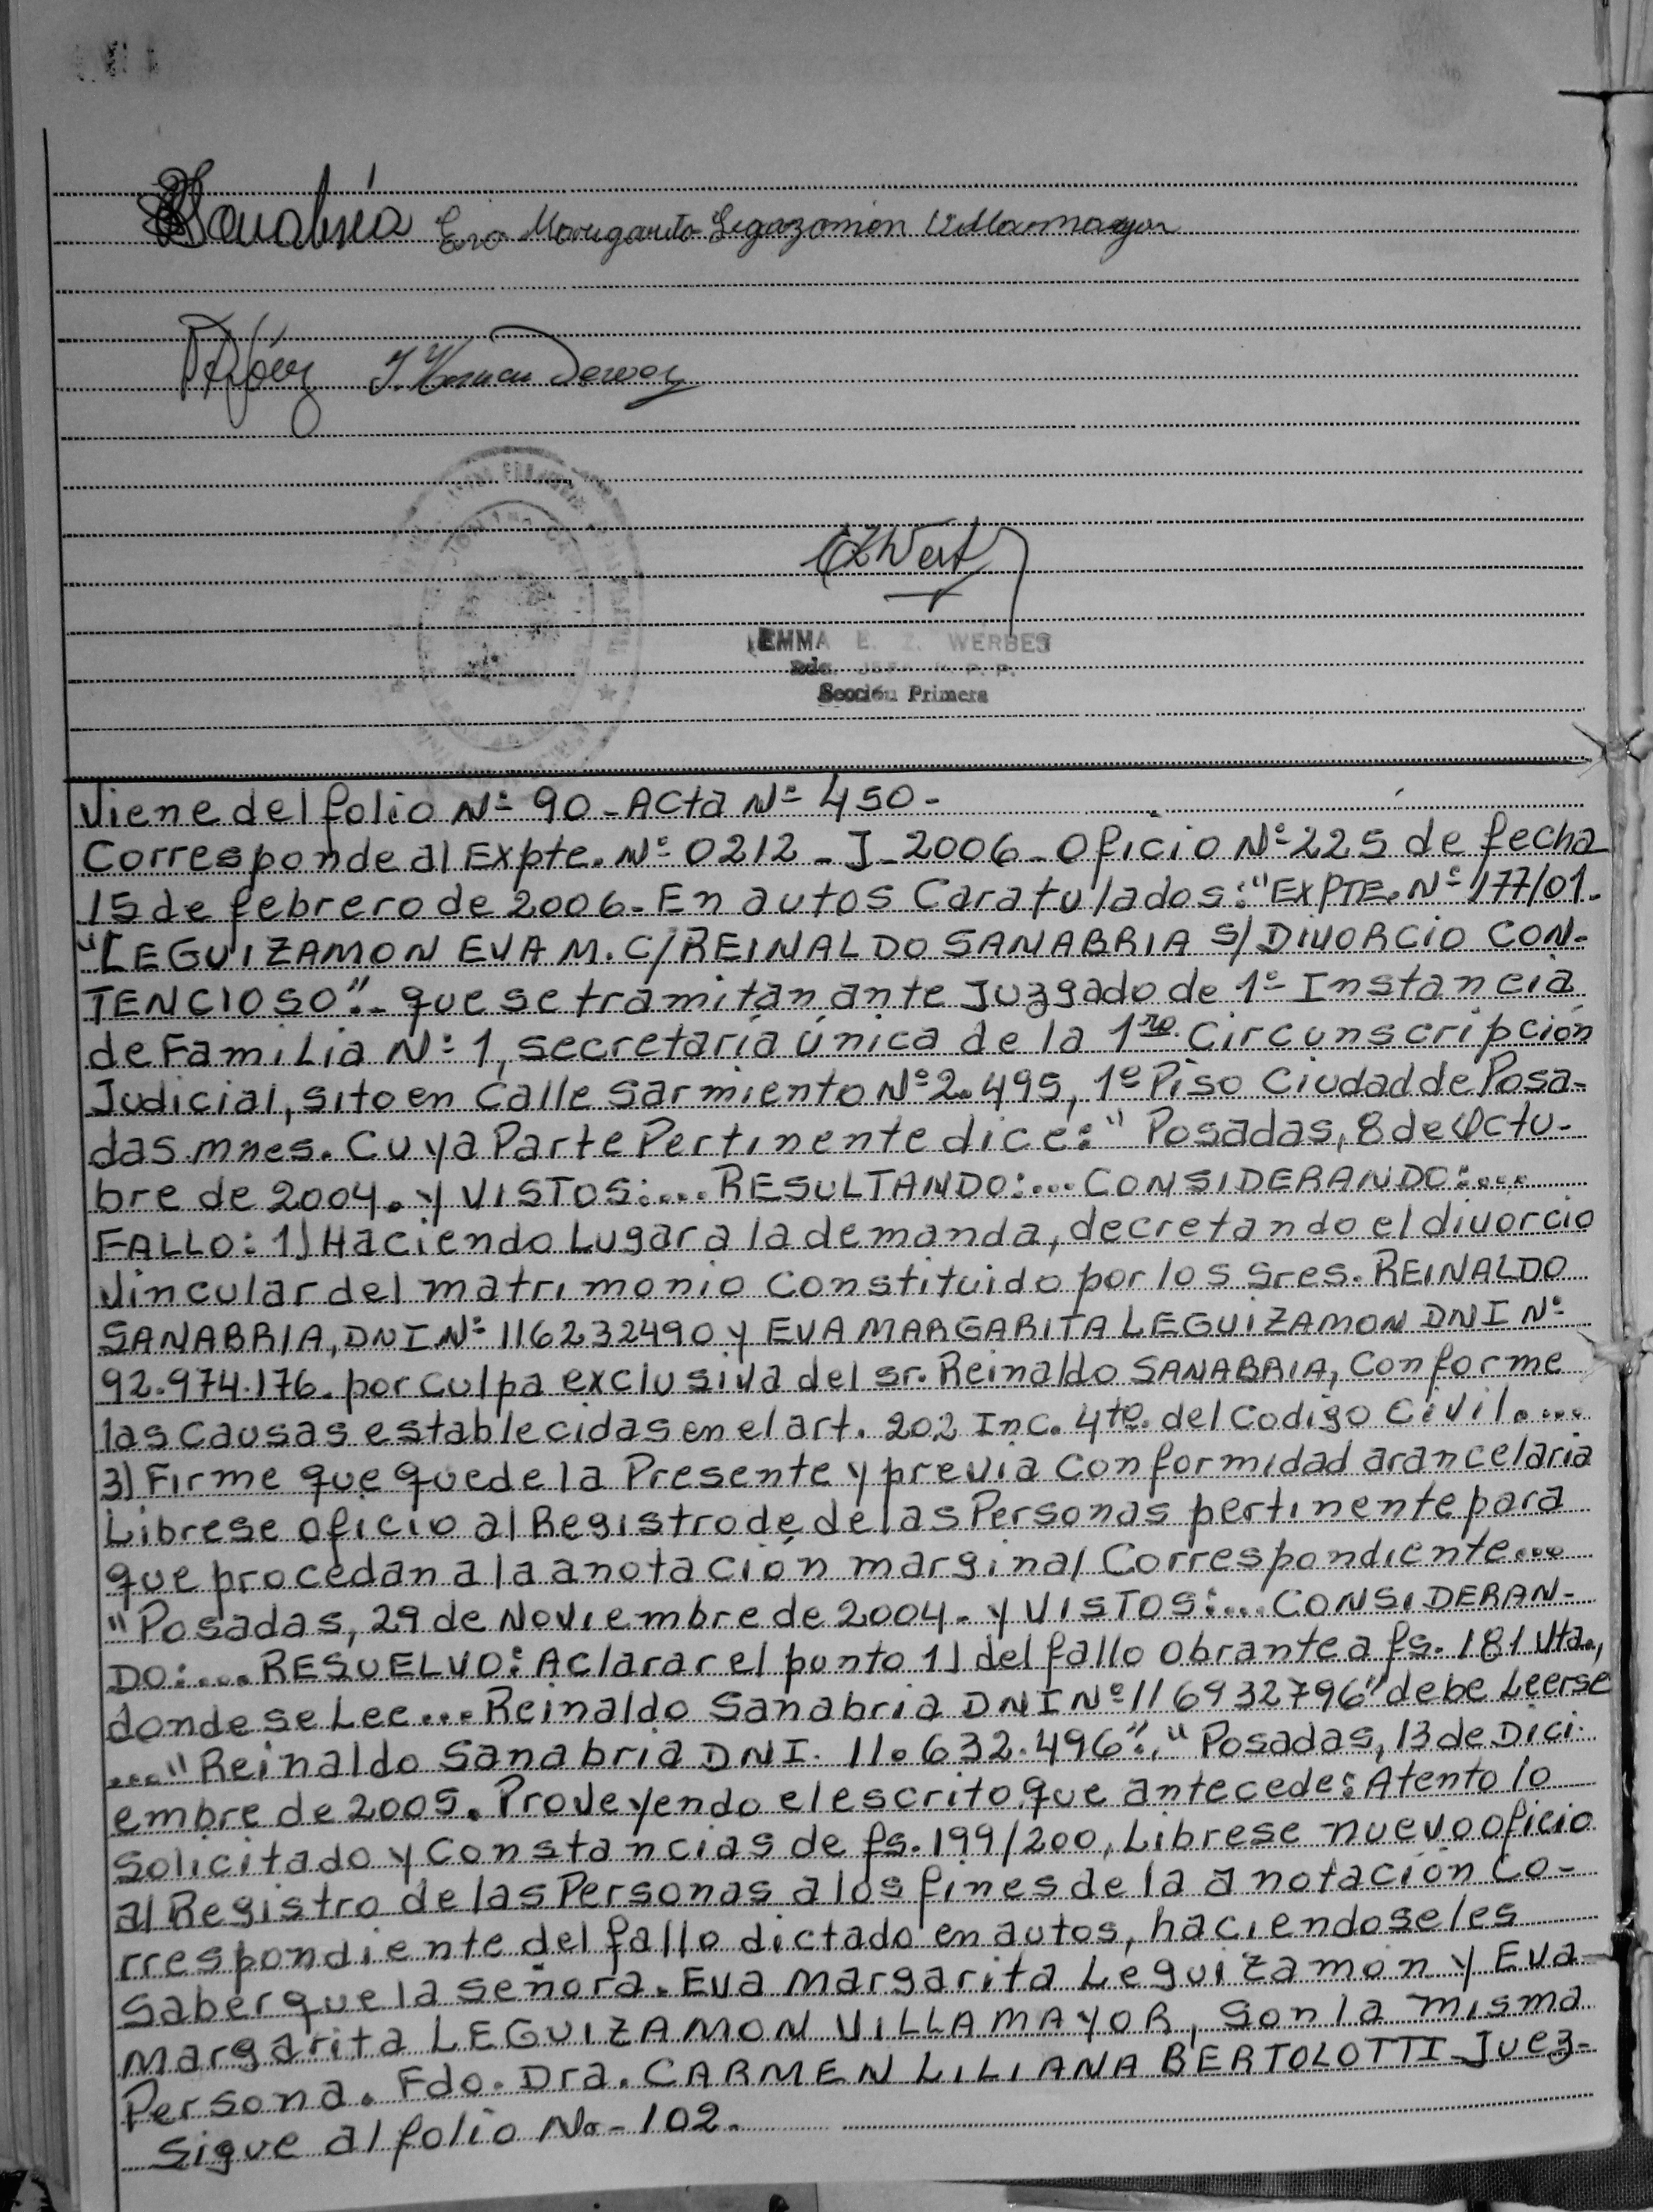 Sanabria Eva Margarita Legazamon Villamayor
EMMA E. Z. WERBES
Sección Primera
Viene del folio Nº 90 - Acta Nº 450 -
Corresponde al Expte. Nº 0212 - J - 2006 - Oficio Nº 225 de fecha
15 de febrero de 2006 - En autos Caratulados: "EXPTE. Nº 177/01.
"LEGUIZAMON EVA M. C/ REINALDO SANABRIA S/ DIVORCIO CON-
TENCIOSO".- que se tramitan ante Juzgado de 1º Instancia
de Familia Nº 1, secretaría única de la 1ra. Circunscripción
Judicial, sito en Calle Sarmiento Nº 2.495, 1º Piso Ciudad de Posa-
das. mnes. Cuya Parte Pertinente dice: "Posadas, 8 de Octu-
bre de 2004. y VISTOS:... RESULTANDO:... CONSIDERANDO:....
FALLO: 1) Haciendo Lugar a la demanda, decretando el divorcio
Vincular del matrimonio Constituido por los Sres. REINALDO
SANABRIA, DNI Nº 116232490 y EVA MARGARITA LEGUIZAMON DNI Nº
92.974.176. por culpa exclusiva del sr. Reinaldo SANABRIA, Conforme
las Causas establecidas en el art. 202 Inc. 4to. del Codigo Civil....
3) Firme que quede la Presente y previa Conformidad arancelaria
Librese oficio al Registro de de las Personas pertinente para
que procedan a la anotación marginal Correspondiente...
"Posadas, 29 de Noviembre de 2004. y VISTOS:... CONSIDERAN-
DO:.... RESUELVO: Aclarar el punto 1) del fallo obrante a fs. 181 Vta.,
donde se Lee... Reinaldo Sanabria DNI Nº 116932796" debe Leerse
...." Reinaldo Sanabria DNI. 11.632.496"." Posadas, 13 de Dici-
embre de 2005. Proveyendo el escrito que antecede: Atento lo
Solicitado y Constancias de fs. 199/200, Librese nuevo oficio
al Registro de las Personas a los fines de la anotación Co-
rrespondiente del fallo dictado en autos, haciendoseles
Saber que la señora. Eva Margarita Leguizamon y Eva
Margarita LEGUIZAMON VILLAMAYOR, Son la misma
Persona. Fdo. Dra. CARMEN LILIANA BERTOLOTTI - Juez-
Sigue al folio No - 102.